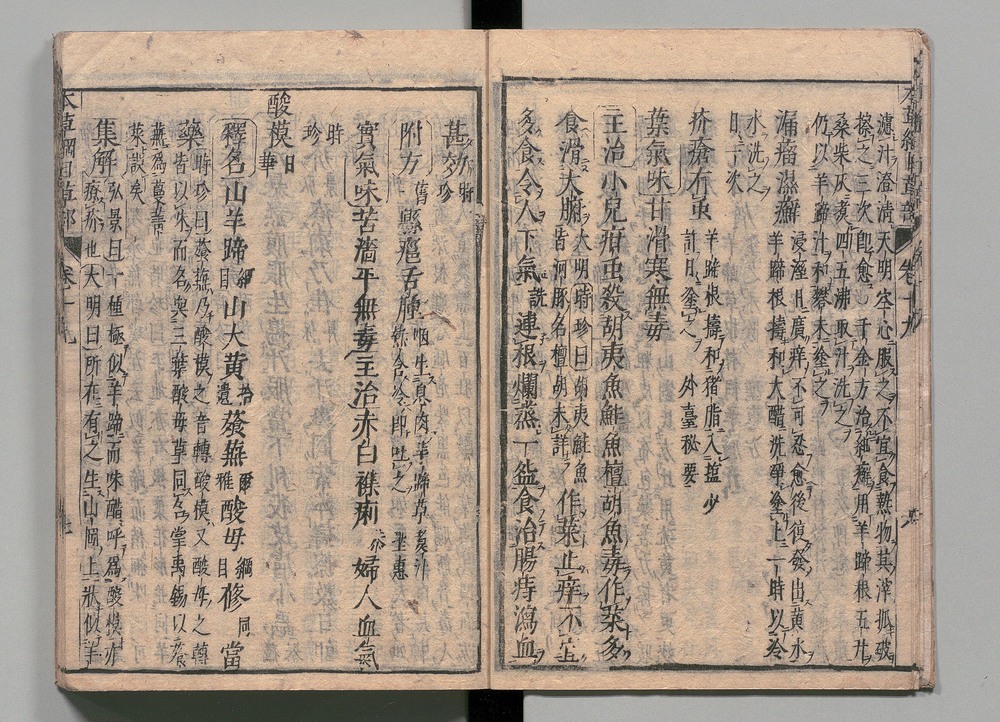 濾汁澄清天明空心服之不宜食熱物其滓抓破
擦之三次即愈 千金方治細癬用羊蹄根五升
桑柴灰煮四五沸取汁洗之
仍以羊蹄汁和礬末塗之
漏瘤濕癬 浸淫日廣痒不可忍愈後復發出黃水
羊蹄根擣和大醋洗淨塗上一時以冷
水洗之
日一次
疥瘡有蟲 羊蹄根擣和猪脂入鹽少
計日塗之 外臺秘要
葉氣味甘滑寒無毒
主治小兒疳虫殺胡夷魚鮭魚檀胡魚毒作菜多
食滑大腑 大明 時珍曰胡夷魚鮭魚
皆河豚名檀胡未詳 作菜止痒不宜
多食令人下氣 詵 連根爛蒸一盌食治腸痔瀉血
甚效 時珍
附方 舊 懸癰舌腫 咽生息肉羊蹄草煮汁
熱含冷即吐之 聖惠
實氣味苦濇平無毒主治赤白雜痢 恭 婦人血氣
時珍
酸模 日華
釋名山羊蹄 綱目 山大黃 拾遺 蕵蕪 爾雅 酸母 綱目 修 同 當
藥 時珍曰蕵蕪乃酸模之音轉酸模又酸母之轉
皆以味而名與三葉酸母草同名掌禹錫以蕵
蕪爲蔓菁
菜誤矣
集解 弘景曰一種極似羊蹄而味醋呼爲酸模亦
療疥也大明曰所在有之生山岡上狀似羊